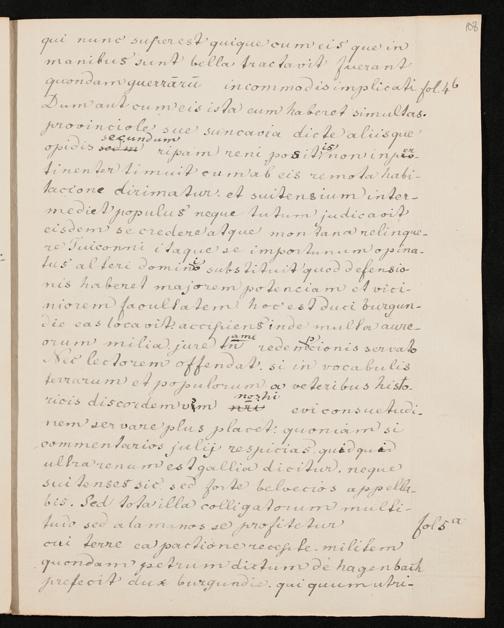 108
qui nunc superest quique cum eis que in
manibus sunt bella tractavit fuerant
quondam guerrārū incommodis implicati fol. 4b
Dum aut cum eis ista cum haberet simultas.
provinciole sue suncavia dicte aliisque
opidis secundum ripam reni positis non inper
tinenter timuit cum ab eis remota habi-
tacione dirimatur. et suitensium inter-
mediet populus neque tutum judicavit
eisdem se credere atque montana relinque-
re Tuiconni itaque se importunum opina-
tus alteri domino substituit quod defensio
nis haberet majorem potenciam et vici-
niorem facultatem hoc est duci burgun-
die eas locavit accipiens inde multa aure-
orum milia jure tn redemcionis servato
Nec lectorem offendat. si in vocabulis
terrarum et populorum a veteribus histo
ricis discordem vim nostri evi consuetudi-
nem servare plus placet: quoniam si
commentarios julij respicias quidquid
ultra renum est gallia dicitur. neque
suitenses sic sed forte belvecios appella-
bis. Sed tota illa colligatorum multi-
tudo sed alamanos se profitetur fol 5a
cui terre ea pactione recepte. militem
quondam petrum dictum de hagenbach
prefecit dux burgundie. qui quum utri-